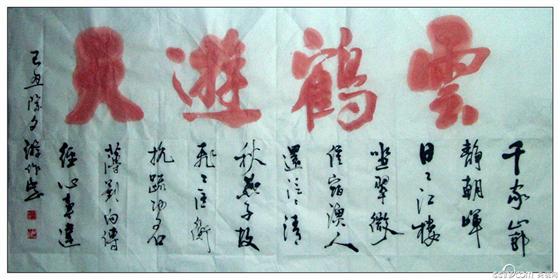 雲鶴遊天
千家山郭
靜朝暉
日々江樓
坐翠微
信宿漁人
還泛々清
秋燕子故
飛々匡衡
抗疏功名
薄劉向傳
經心事違
己丑除夕